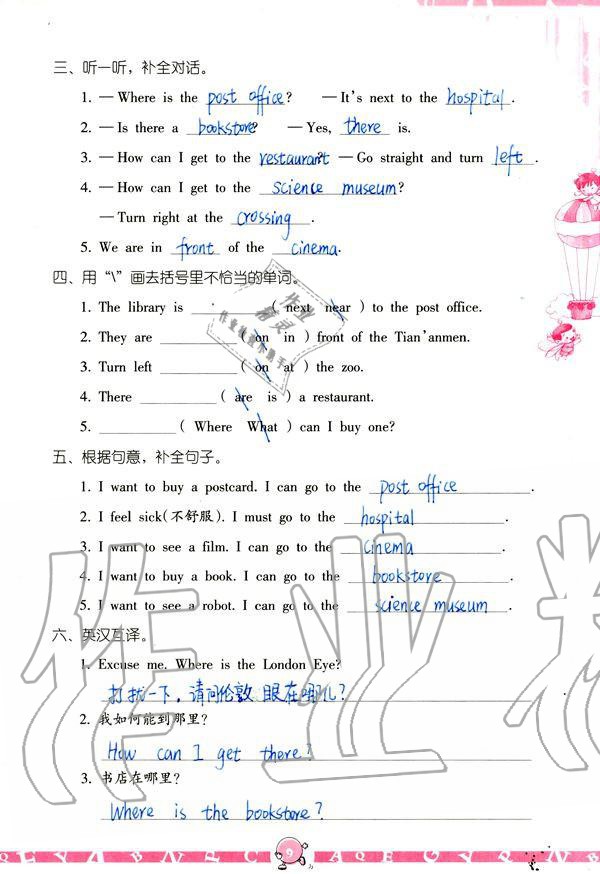 三、听一听，补全对话。
1. — Where is the post office? — It's next to the hospital.
2. — Is there a bookstore? — Yes, there is.
3. — How can I get to the restaurant? — Go straight and turn left.
4. — How can I get to the science museum?
— Turn right at the crossing.
5. We are in front of the cinema.
四、用“\”画去括号里不恰当的单词。
1. The library is ________ ( next near ) to the post office.
2. They are ________ ( on in ) front of the Tian'anmen.
3. Turn left ________ ( on at ) the zoo.
4. There ________ ( are is ) a restaurant.
5. ________ ( Where What ) can I buy one?
五、根据句意，补全句子。
1. I want to buy a postcard. I can go to the post office.
2. I feel sick(不舒服). I must go to the hospital.
3. I want to see a film. I can go to the cinema.
4. I want to buy a book. I can go to the bookstore.
5. I want to see a robot. I can go to the science museum.
六、英汉互译。
1. Excuse me. Where is the London Eye?
打扰一下，请问伦敦眼在哪儿？
2. 我如何能到那里？
How can I get there?
3. 书店在哪里？
Where is the bookstore?
9
作业精